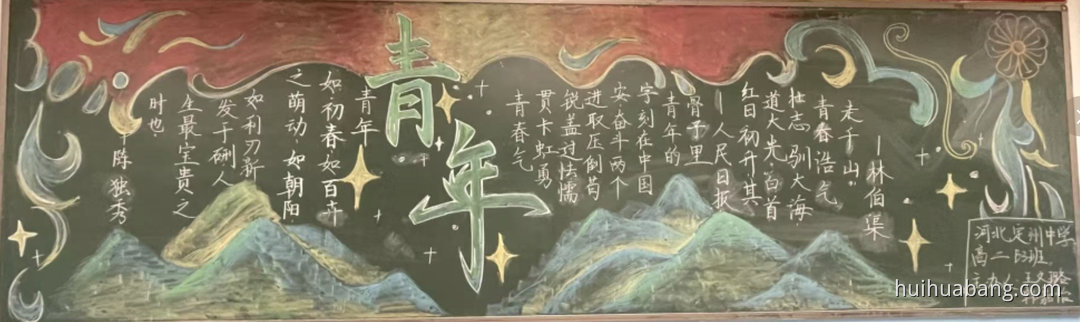 青年
青年
如初春如百卉
之萌动,如朝阳
如利刃新
发于硎人
生最宝贵之
时也
陈独秀
青春气
贯长虹勇
锐盖过怯懦
进取压倒苟
安奋斗两个
字刻在中国
青年的
骨子里
—人民日报
红日初升其
道大光白首
壮志驯大海,
青春浩气
走千山。
—林伯渠
河北定州中学
高二
班
huihuabang.com